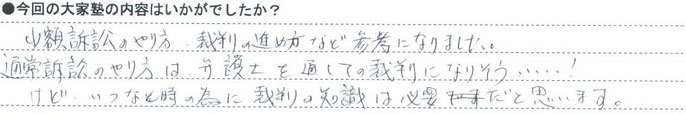 ●今回の大家塾の内容はいかがでしたか？
少額訴訟のやり方、裁判の進め方など参考になりました。
通常訴訟のやり方は弁護士を通しての裁判になりそう……！
けど、いつなん時の為に裁判の知識は必要だと思います。